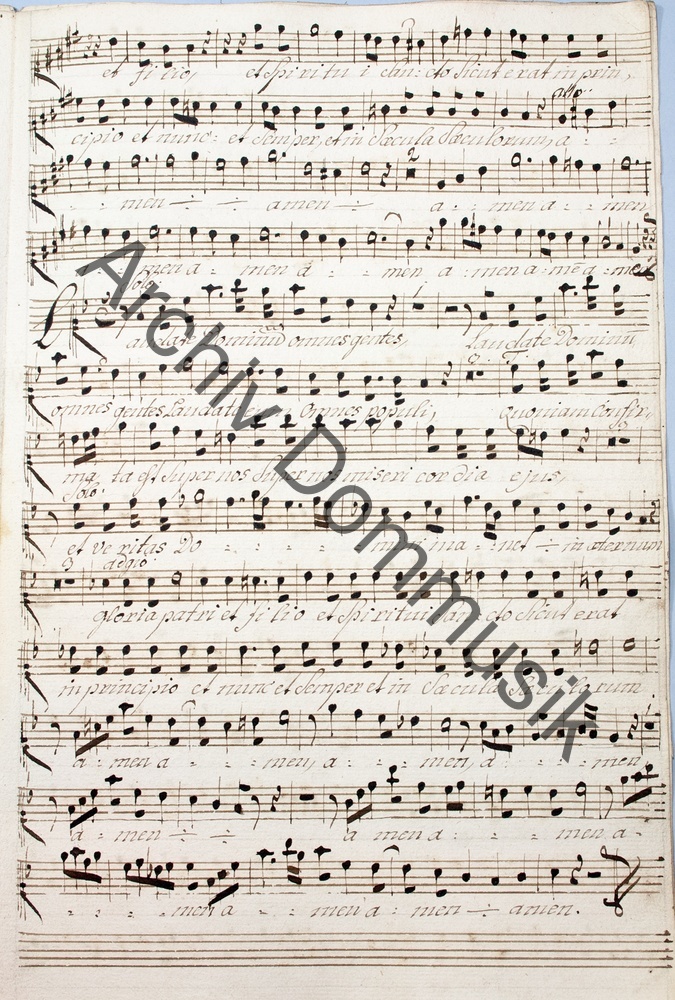 et filio, et Spiritui Sancto Sicut erat in prin,
allo:
cipio et nunc: et Semper, et in Sæcula Sæculorum, a - -
2
- - men ÷ ÷ amen ÷ a - men a - - men
- men a - men a - - men a - men a - mē a - men
Solo
Laudate Dominū omnes gentes, Laudate Dominū
3 T.
omnes gentes, Laudate eum Omnes populi, Quoniam Confir,
3
ma, ta est super nos super nos misericordia ejus,
Solo:
et veritas Do - - - - mini ma - net ÷ in æternum
3 adgio
gloria patri et filio et Spiritui San cto Sicut erat
in principio et nunc et Semper et in Sæcula Sæculorum
a - men a - - - men, a - - - men, a - - - men,
a - men ÷ ÷ a men a - - - men a -
- - - - men a - - men a - men ÷ amen.
Archiv Dommusik